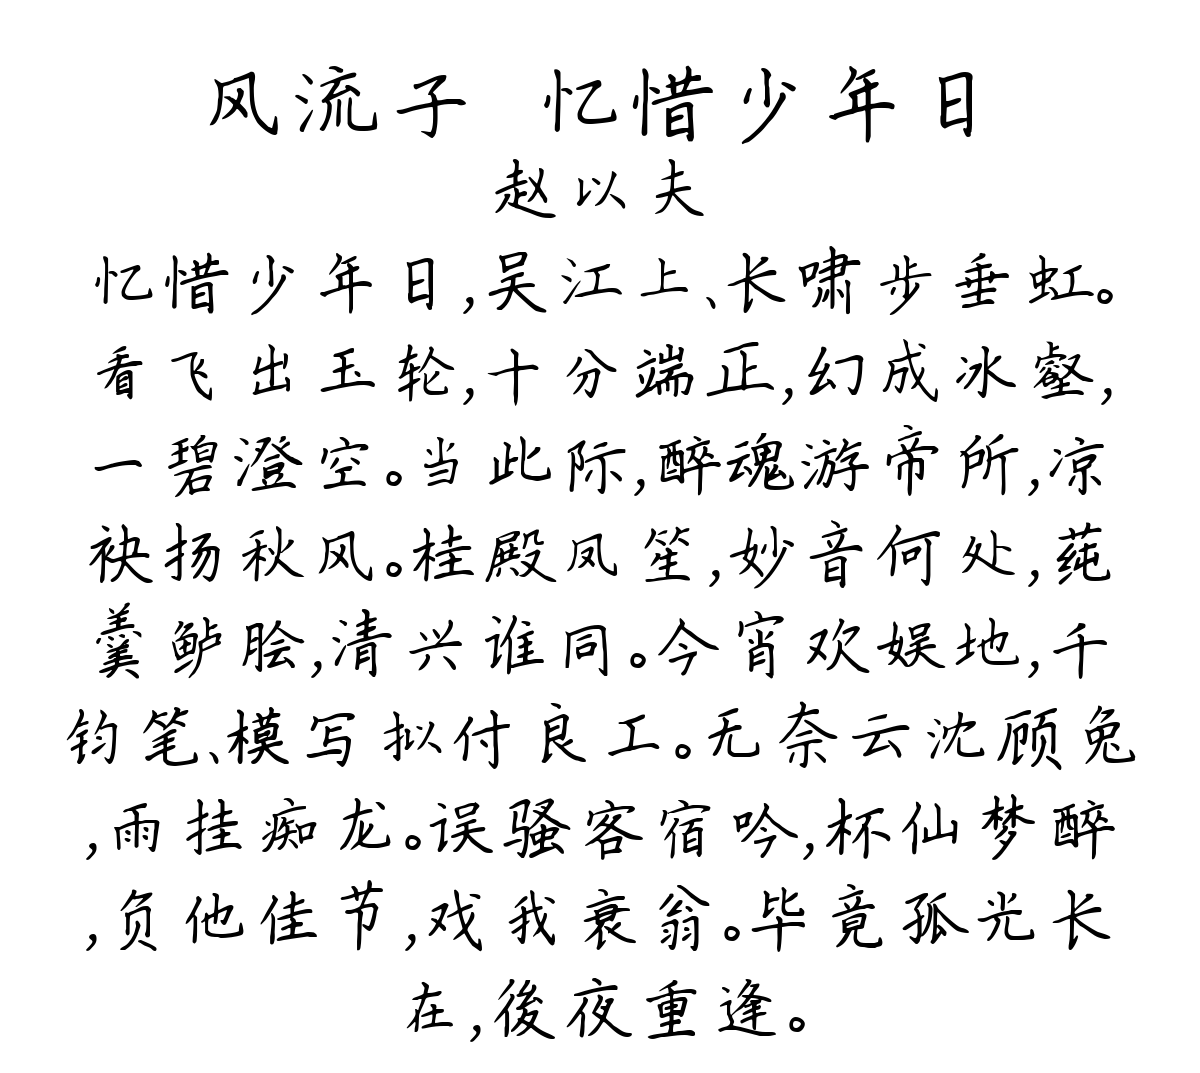 风流子 忆惜少年日
赵以夫
忆惜少年日,吴江上、长啸步垂虹。
看飞出玉轮,十分端正,幻成冰壑,
一碧澄空。当此际,醉魂游帝所,凉
袂扬秋风。桂殿凤笙,妙音何处,莼
羹鲈脍,清兴谁同。今宵欢娱地,千
钧笔、模写拟付良工。无奈云沈顾兔
,雨挂痴龙。误骚客宿吟,杯仙梦醉
,负他佳节,戏我衰翁。毕竟孤光长
在,後夜重逢。